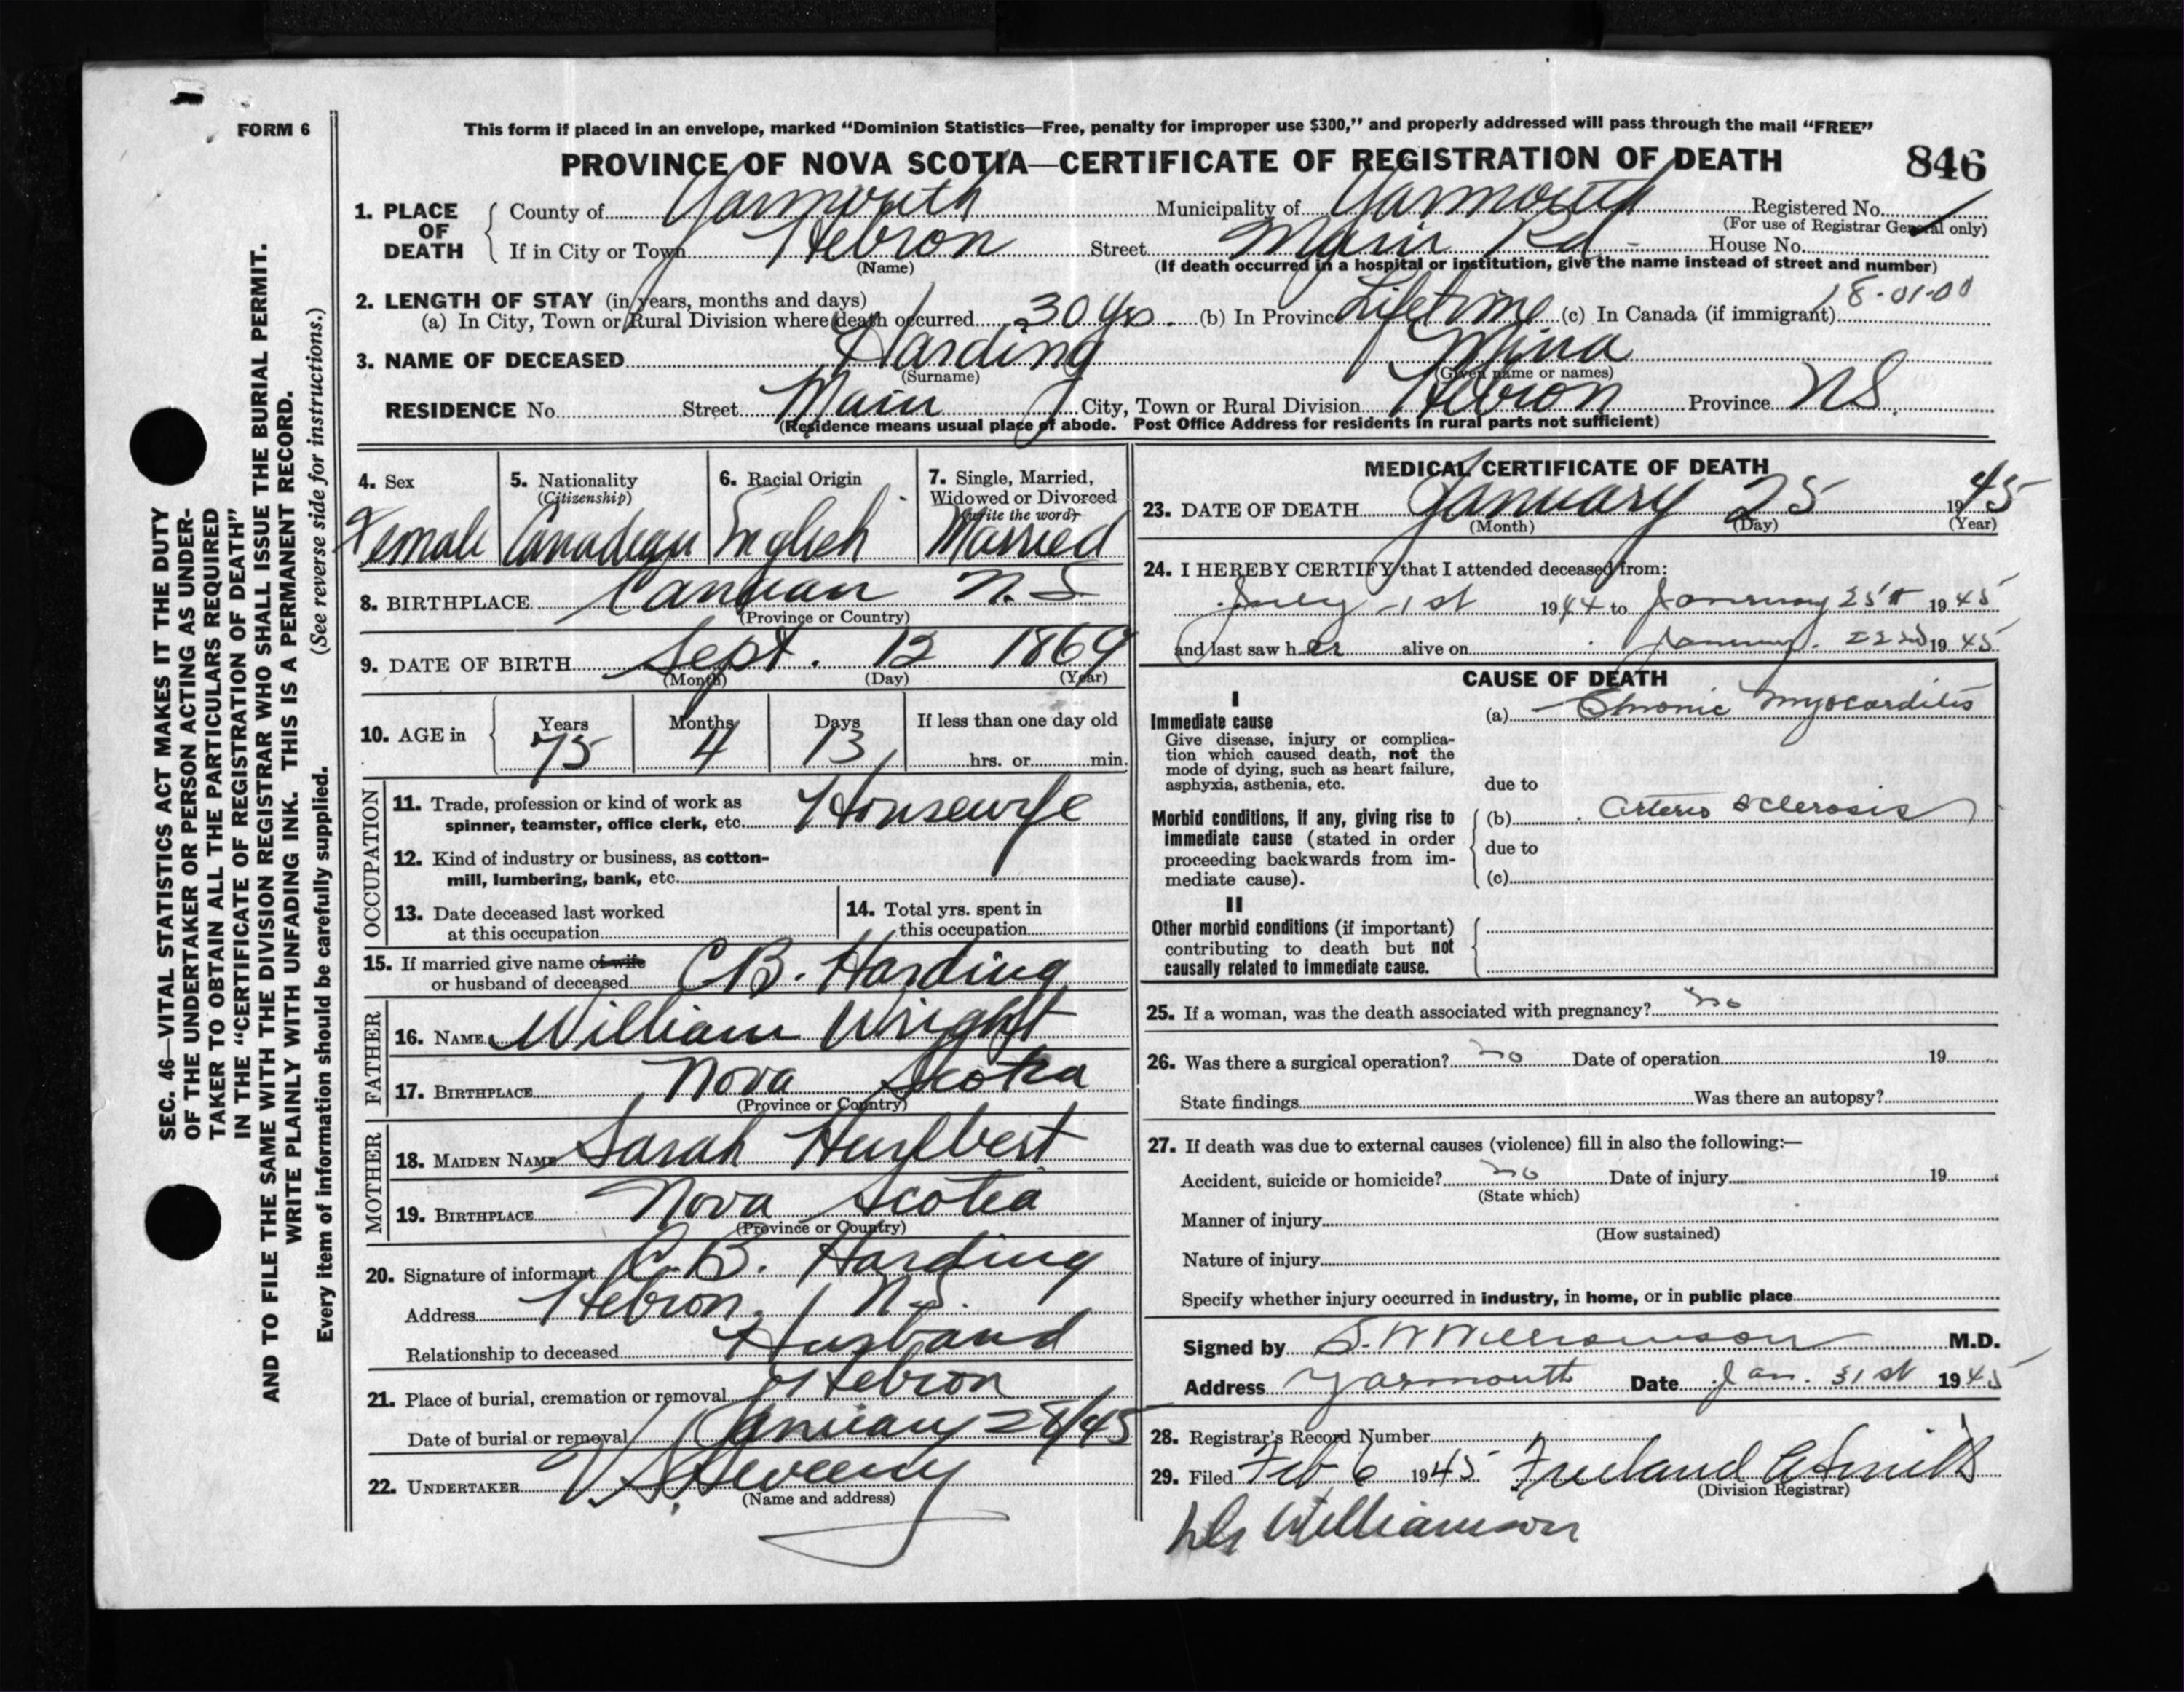 FORM 6
This form if placed in an envelope, marked "Dominion Statistics—Free, penalty for improper use $300," and properly addressed will pass through the mail "FREE"
PROVINCE OF NOVA SCOTIA—CERTIFICATE OF REGISTRATION OF DEATH 846
SEC. 46—VITAL STATISTICS ACT MAKES IT THE DUTY
OF THE UNDERTAKER OR PERSON ACTING AS UNDER-
TAKER TO OBTAIN ALL THE PARTICULARS REQUIRED
IN THE "CERTIFICATE OF REGISTRATION OF DEATH"
AND TO FILE THE SAME WITH THE DIVISION REGISTRAR WHO SHALL ISSUE THE BURIAL PERMIT.
WRITE PLAINLY WITH UNFADING INK. THIS IS A PERMANENT RECORD.
Every item of information should be carefully supplied. (See reverse side for instructions.)
1. PLACE OF DEATH
County of Yarmouth Municipality of Yarmouth Registered No.
(For use of Registrar General only)
If in City or Town Hebron Street Main Rd - House No.
(Name) (If death occurred in a hospital or institution, give the name instead of street and number)
2. LENGTH OF STAY (in years, months and days) 18-01-00
(a) In City, Town or Rural Division where death occurred 30 yrs. (b) In Province Lifetime (c) In Canada (if immigrant)
3. NAME OF DECEASED Harding Mina
(Surname) (Given name or names)
RESIDENCE No. Street Main City, Town or Rural Division Hebron Province N.S.
(Residence means usual place of abode. Post Office Address for residents in rural parts not sufficient)
4. Sex Female
5. Nationality (Citizenship) Canadian
6. Racial Origin English
7. Single, Married, Widowed or Divorced (write the word) Married
8. BIRTHPLACE N.S
(Province or Country)
9. DATE OF BIRTH Sept. 12 1869
(Month) (Day) (Year)
10. AGE in Years 75 Months 4 Days 13 If less than one day old
hrs. or min.
OCCUPATION
11. Trade, profession or kind of work as
spinner, teamster, office clerk, etc. Housewife
12. Kind of industry or business, as cotton-
mill, lumbering, bank, etc.
13. Date deceased last worked
at this occupation
14. Total yrs. spent in
this occupation
15. If married give name of wife
or husband of deceased C B. Harding
FATHER
16. NAME William Wright
17. BIRTHPLACE Nova Scotia
(Province or Country)
MOTHER
18. MAIDEN NAME Sarah Hurlbert
19. BIRTHPLACE Nova Scotia
(Province or Country)
20. Signature of informant C. B. Harding
Address Hebron, N.S.
Relationship to deceased Husband
21. Place of burial, cremation or removal Hebron
Date of burial or removal January 28/45
22. UNDERTAKER V S Sweeny
(Name and address)
MEDICAL CERTIFICATE OF DEATH
23. DATE OF DEATH January 25 1945
(Month) (Day) (Year)
24. I HEREBY CERTIFY that I attended deceased from:
July 1st 1944 to January 25th 1945
and last saw her alive on January 22nd 1945
CAUSE OF DEATH
I
Immediate cause (a) Chronic Myocarditis
Give disease, injury or complica-
tion which caused death, not the
mode of dying, such as heart failure,
asphyxia, asthenia, etc. due to
Morbid conditions, if any, giving rise to (b) Arterio sclerosis
immediate cause (stated in order
proceeding backwards from im- due to
mediate cause). (c)
II
Other morbid conditions (if important)
contributing to death but not
causally related to immediate cause.
25. If a woman, was the death associated with pregnancy? no
26. Was there a surgical operation? no Date of operation 19
State findings Was there an autopsy?
27. If death was due to external causes (violence) fill in also the following:—
Accident, suicide or homicide? no Date of injury 19
(State which)
Manner of injury
(How sustained)
Nature of injury
Specify whether injury occurred in industry, in home, or in public place
Signed by S. W Williamson M.D.
Address Yarmouth Date Jan. 31st 1945
28. Registrar's Record Number
29. Filed Feb 6 1945 Freeland Smith
(Division Registrar)
Dr Williamson